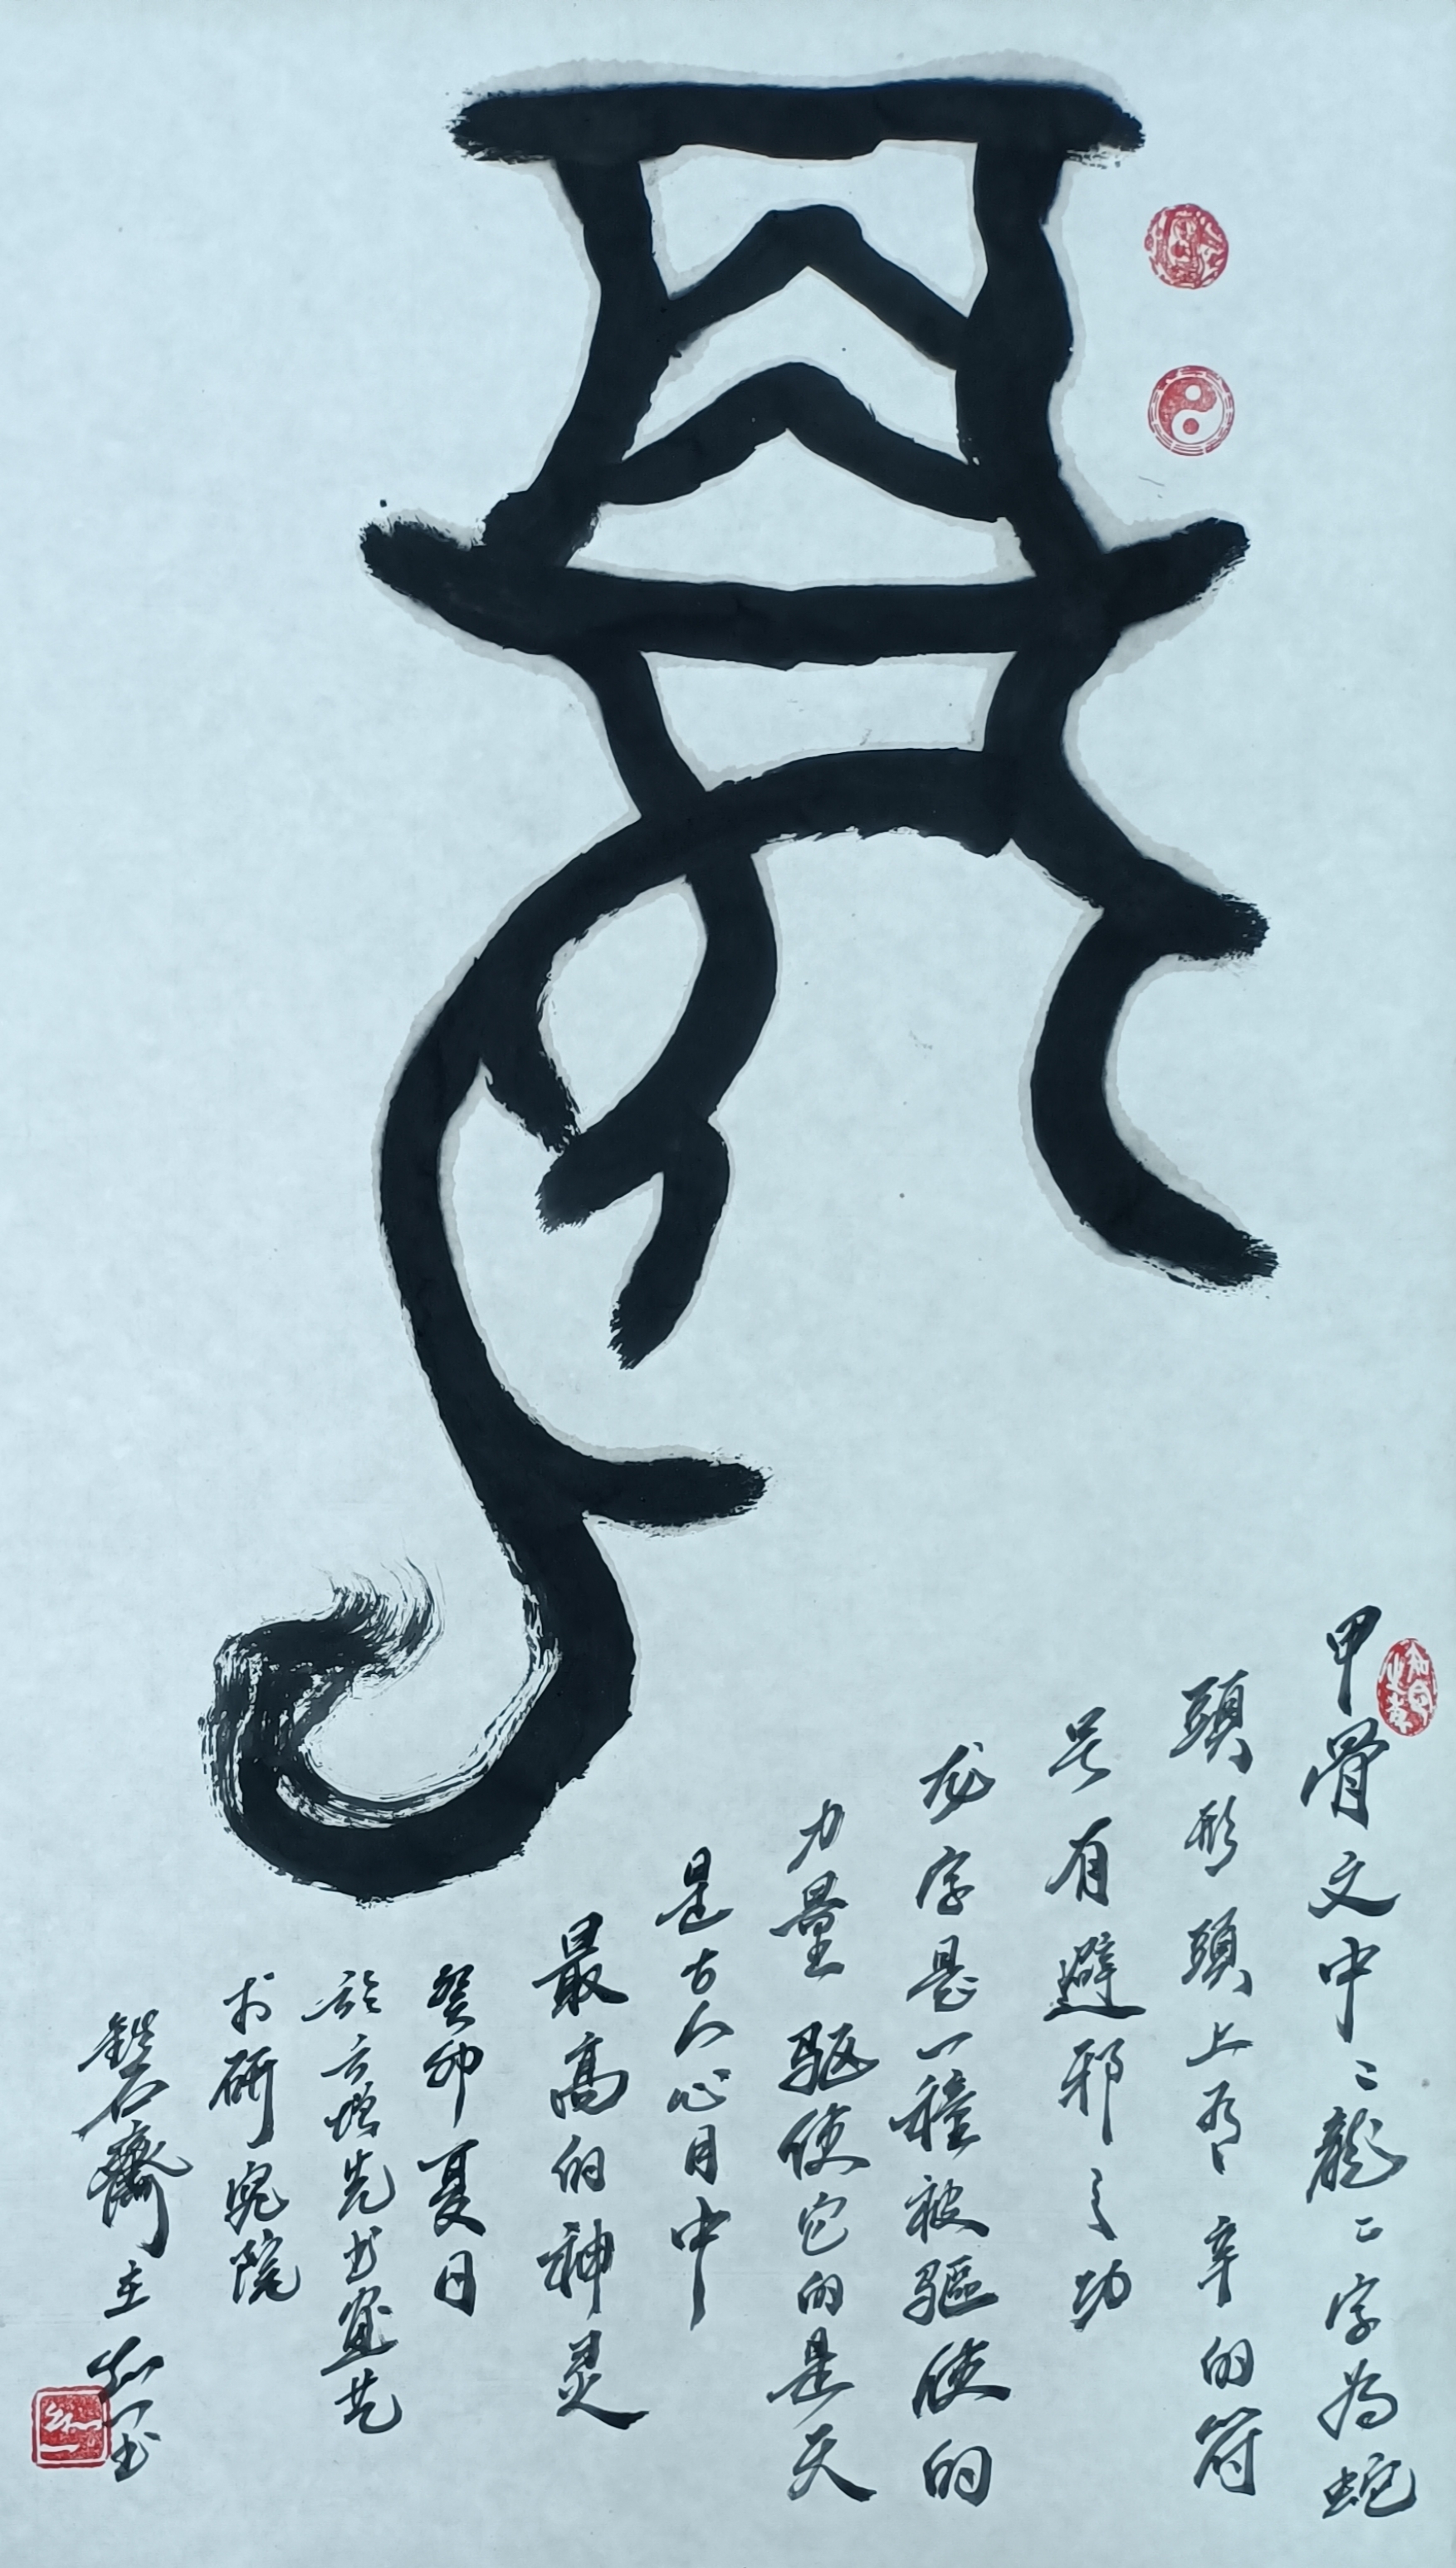 龍
甲骨文中："龍"字为蛇
頭形頭上有辛的符
号有避邪之功
龙字是一種被驅使的
力量驱使它的是天
是古人心目中
最高的神灵
癸卯夏日
於云增先书画艺
术研究院
齋主知一书